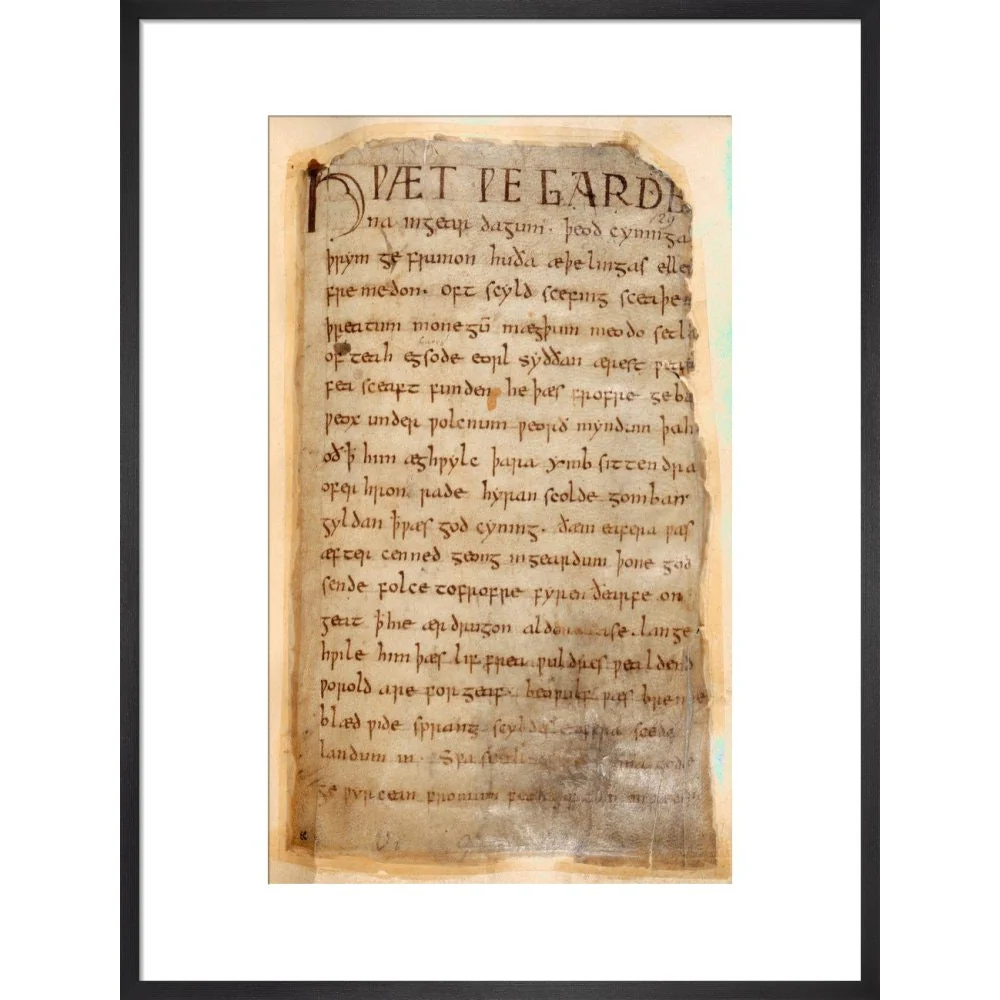 HǷÆT ǷE GARDE
na ingear dagum. þeod cyninga
þrym ge frunon huða æþelingas elle
fre medon. oft scyld scefing sceaþe
þreatum monegū mægþum meodo setla
of teah egsode eorl syððan ærest ƿea
fea sceaft funden he þæs frofre geba
ƿeox under ƿolcnum ƿeorð myndum þah
oð ꝥ him æghƿylc þara ymb sittendra
ofer hron rade hyran scolde gomban
gyldan ꝥ ƿæs god cyning. ðæm eafera ƿæs
æfter cenned geong ingeardum þone god
sende folce tofrofre fyren ðearfe on
geat ꝥ hie ær drugon aldor ase. lange
hƿile him þæs lif frea ƿuldres ƿealdend
ƿorold are for geaf. beoƿulf ƿæs breme
blæd ƿide sprang scyldes eafera scede
landum in. Sƿa sceal gode
ge ƿyrcean fromum feoh giftum
129